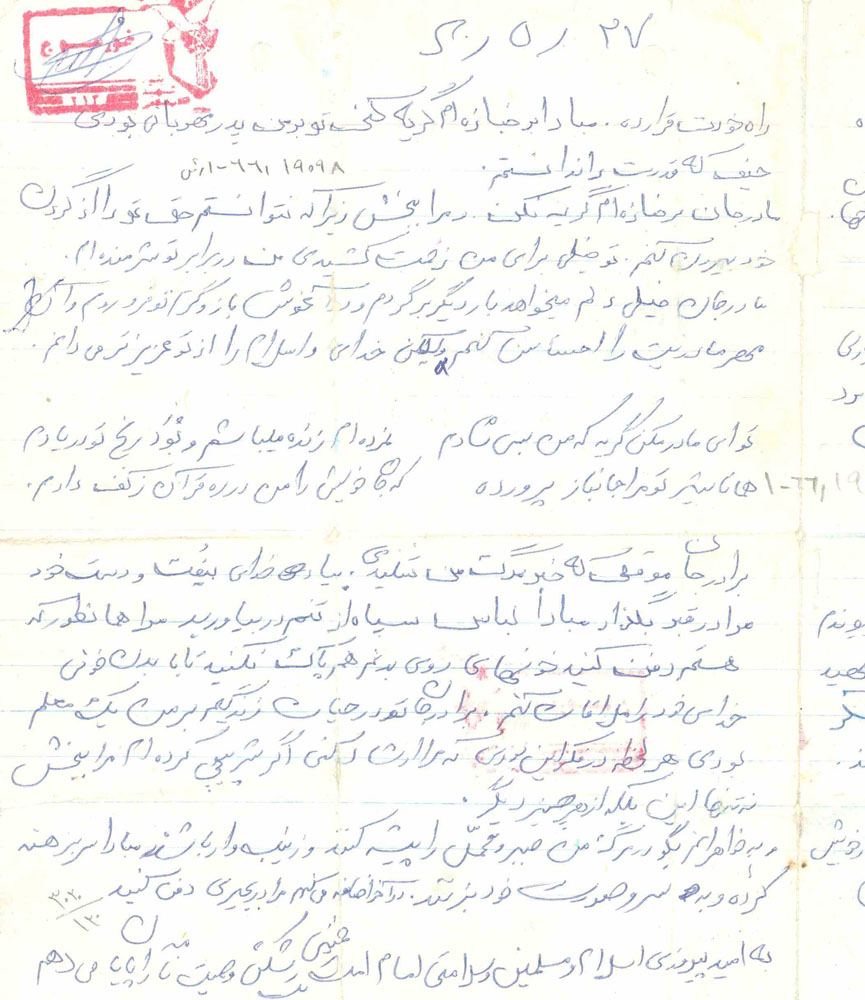 ۲۷ ر ۵ ر
راه خودت قرار ده . مبادا بر جنازه ام گریه کنی تو بر من پدر مهربانی بودی
حیف که قدرت را ندانستم .
۱-۶۶ ر ۱۹۰۹۸
مادر جان بر جنازه ام گریه نکن . مرا ببخش زیرا که نتوانستم حق تو را از گردن
خود بیرون کنم . تو خیلی برای من زحمت کشیدی من در برابر تو شرمنده ام .
مادر جان خیلی دلم میخواهد بار دیگر برگردم و در آغوش باز و گرم تو فرو روم و آن
مهر مادریت را احساس کنم ولیکن خدای و اسلام را از تو عزیزتر می دانم .
تو ای مادر مکن گریه که من بس شادم نمرده ام زنده میباشم و بود رخ تو در یادم
همانا شیر تو مرا جانباز پرورده که جان خویش را من در ره قرآن ز کف دادم .
۱-۶۶ ر ۱۹
برادر جان موقعی که خبر مرگ من شنیدی . بیاد خدای بیفت و دست خود
مرا در قبر بگذار مبادا لباس سپاه از تنم در بیاورید مرا همانطور که
هستم دفن کنید خونهای روی بدنم هم پاک نکنید تا با بدن خونی
خدای خود را ملاقات کنم . برادر جان تو در حیات زندگیم بر من یک معلم
بودی هر لحظه در فکر این بودی که مرا ارشاد کنی اگر سرپیچی کرده ام مرا ببخش
نه تنها این بلکه از هر چیز دیگر .
و به خواهرانم بگو در مرگ من صبر و تحمل را پیشه کنند و زینب وار باشند مبادا سر برهنه
کرده و به سر و صورت خود بزنند . در آخر اضافه می کنم مرا در بجیری دفن کنید
به امید پیروزی اسلام و مسلمین و سلامتی امام امت خمینی بت شکن وصیت نامه را پایان می دهم